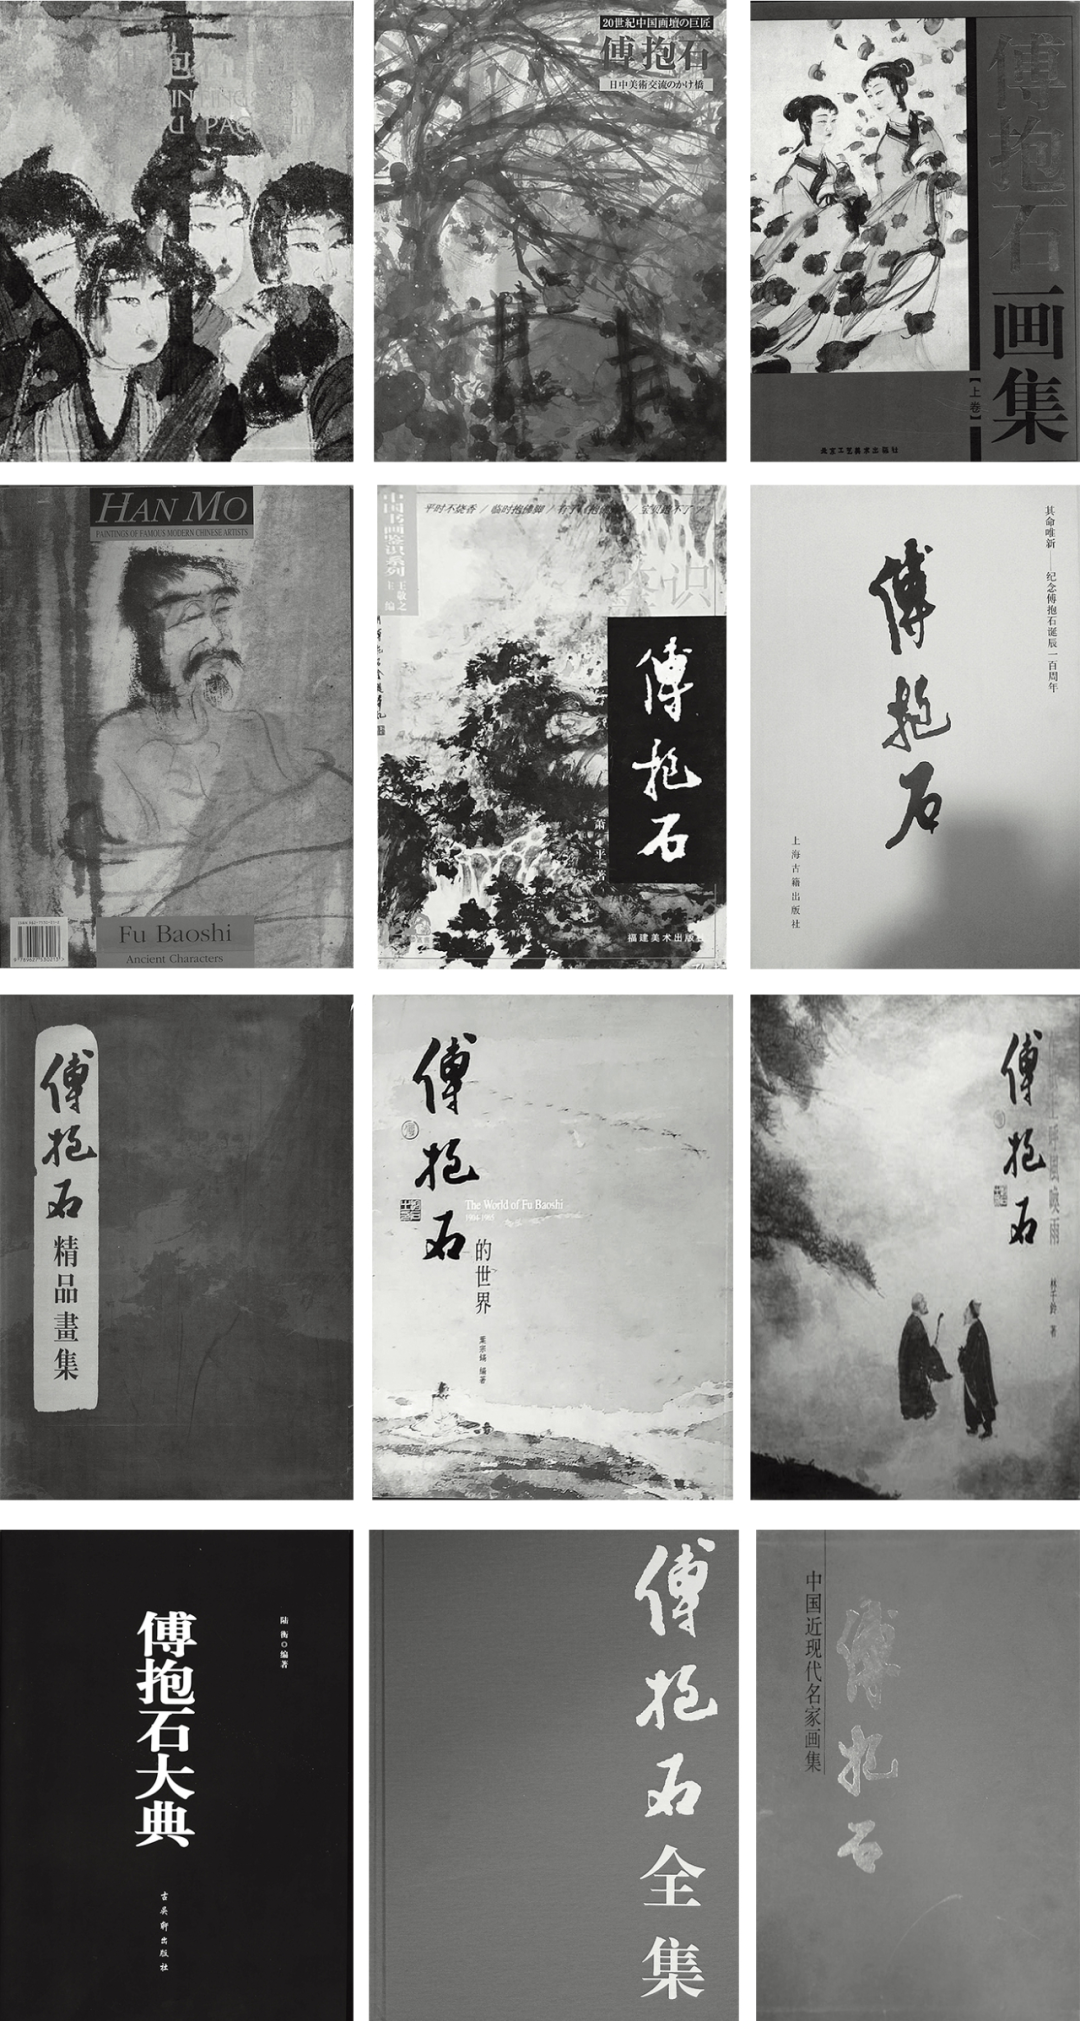 20世紀中国画壇の巨匠
傅抱石
日中美術交流のかけ橋
傅抱石画集
【上卷】
北京工艺美术出版社
HAN MO
PAINTINGS OF FAMOUS MODERN CHINESE ARTISTS
Fu Baoshi
Ancient Characters
中国书画鉴识系列
王敬之
主编
平时不烧香 / 临时抱佛脚
鉴识
傅抱石
福建美术出版社
其命唯新——纪念傅抱石诞辰一百周年
傅抱石
上海古籍出版社
傅抱石精品畫集
傅抱石的世界
The World of Fu Baoshi
1904-1965
葉宗鎬 编著
傅抱石
呼風喚雨
著
陆衡○编著
傅抱石大典
古吴轩出版社
傅抱石全集
中国近现代名家画集
傅抱石